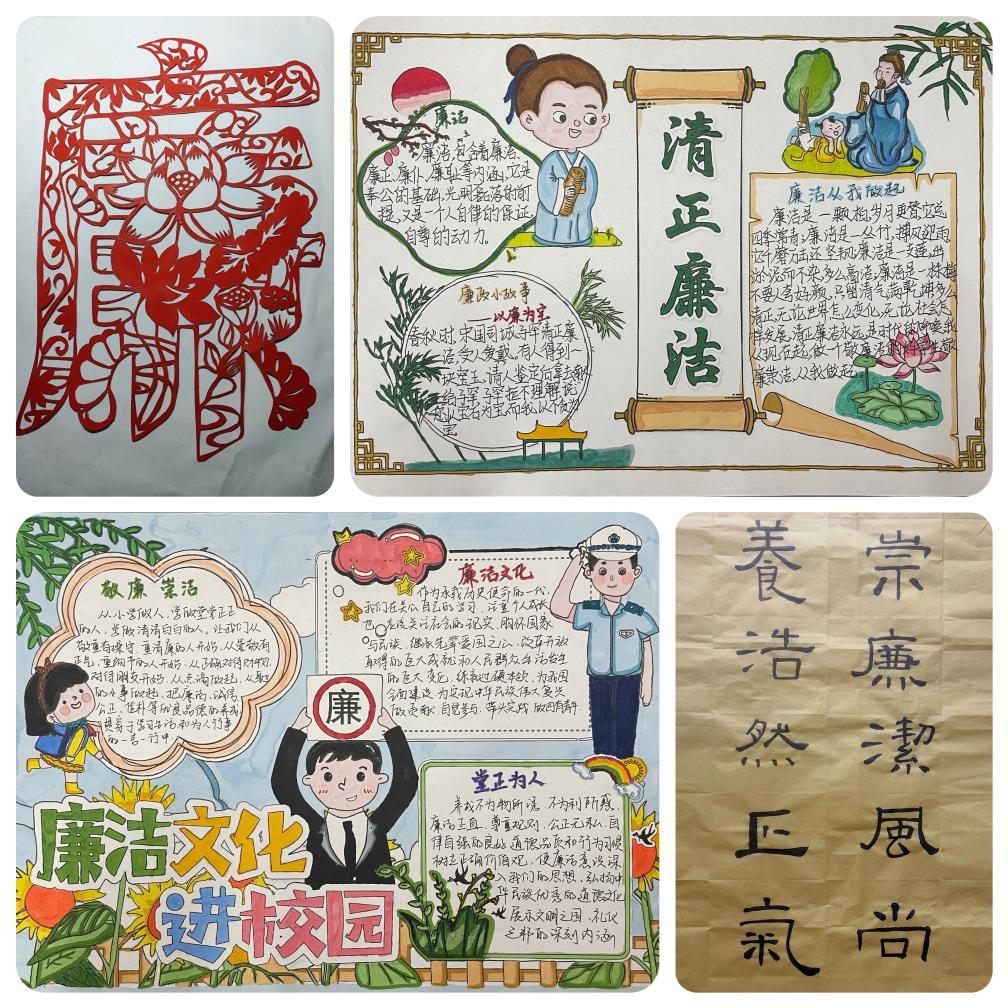 廉
清正廉洁
廉洁
廉洁,包含着廉洁、
廉正、廉仆、廉耻等内涵,它是
奉公的基础,光明磊落的前
提,又是一个人自律的保证,
自尊的动力。
廉政小故事
——以廉为宝
春秋时,宋国司城子罕清正廉
洁,受人爱戴。有人得到一
块宝玉,请人鉴定后拿去献
给子罕,子罕拒不理解,说
您以宝石为宝,而我以不贪为
宝
廉洁从我做起
廉洁是一颗柏,岁月更替,它总
四季常青;廉洁是一丛竹,搏风迎雨,
它千磨万击还坚韧;廉洁是一支莲,出
淤泥而不染,多么高洁;廉洁是一株梅
不要人夸好颜,只留清气满乾坤,多么
清正,无论世界怎么变化,无论社会怎
样发展,清正廉洁永远是时代的呼唤,我
从现在起,做一个敬廉
廉崇洁,从我做起
敬廉崇洁
从小学做人,学做堂堂正正
的人,学做清清白白的人。让我们从
敬重有操守、重清廉的人开始,从崇敬有
正气、重细节的人开始,从正确对待财物、
对待朋友开始,从点滴做起,从身边
的小事做起,把廉洁、诚信、
公正、俭朴等优良品德的养成
贯穿于学习生活和为人行事
的一言一行中。
廉洁文化
作为承载历史使命的一代,
我们在关心自己的学习,注重个人成长
也应该关注社会的现实,胸怀国家
与民族,继承先辈爱国之心,改革开放
取得的巨大成就和人民群众生活发生
的巨大变化,练就过硬本领,为我国
全面建设为实现中华民族伟大复兴
做贡献,自觉参与,带头实践,做四有青年。
廉
堂正为人
养成不为物所诱,不为利所惑,
廉洁正直,尊重规则,公正无私,自
律自强的良好道德品质和行为习惯
树立正确价值观,使廉洁意识深
入我们的思想,弘扬中
华民族优秀的道德文化
展示文明之国,礼仪
之邦的深刻内涵
廉洁文化
进校园
崇廉潔風尚
養浩然正氣